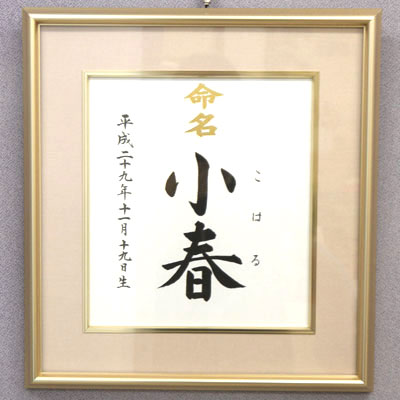 命名
こはる
小春
平成二十九年十一月十九日生